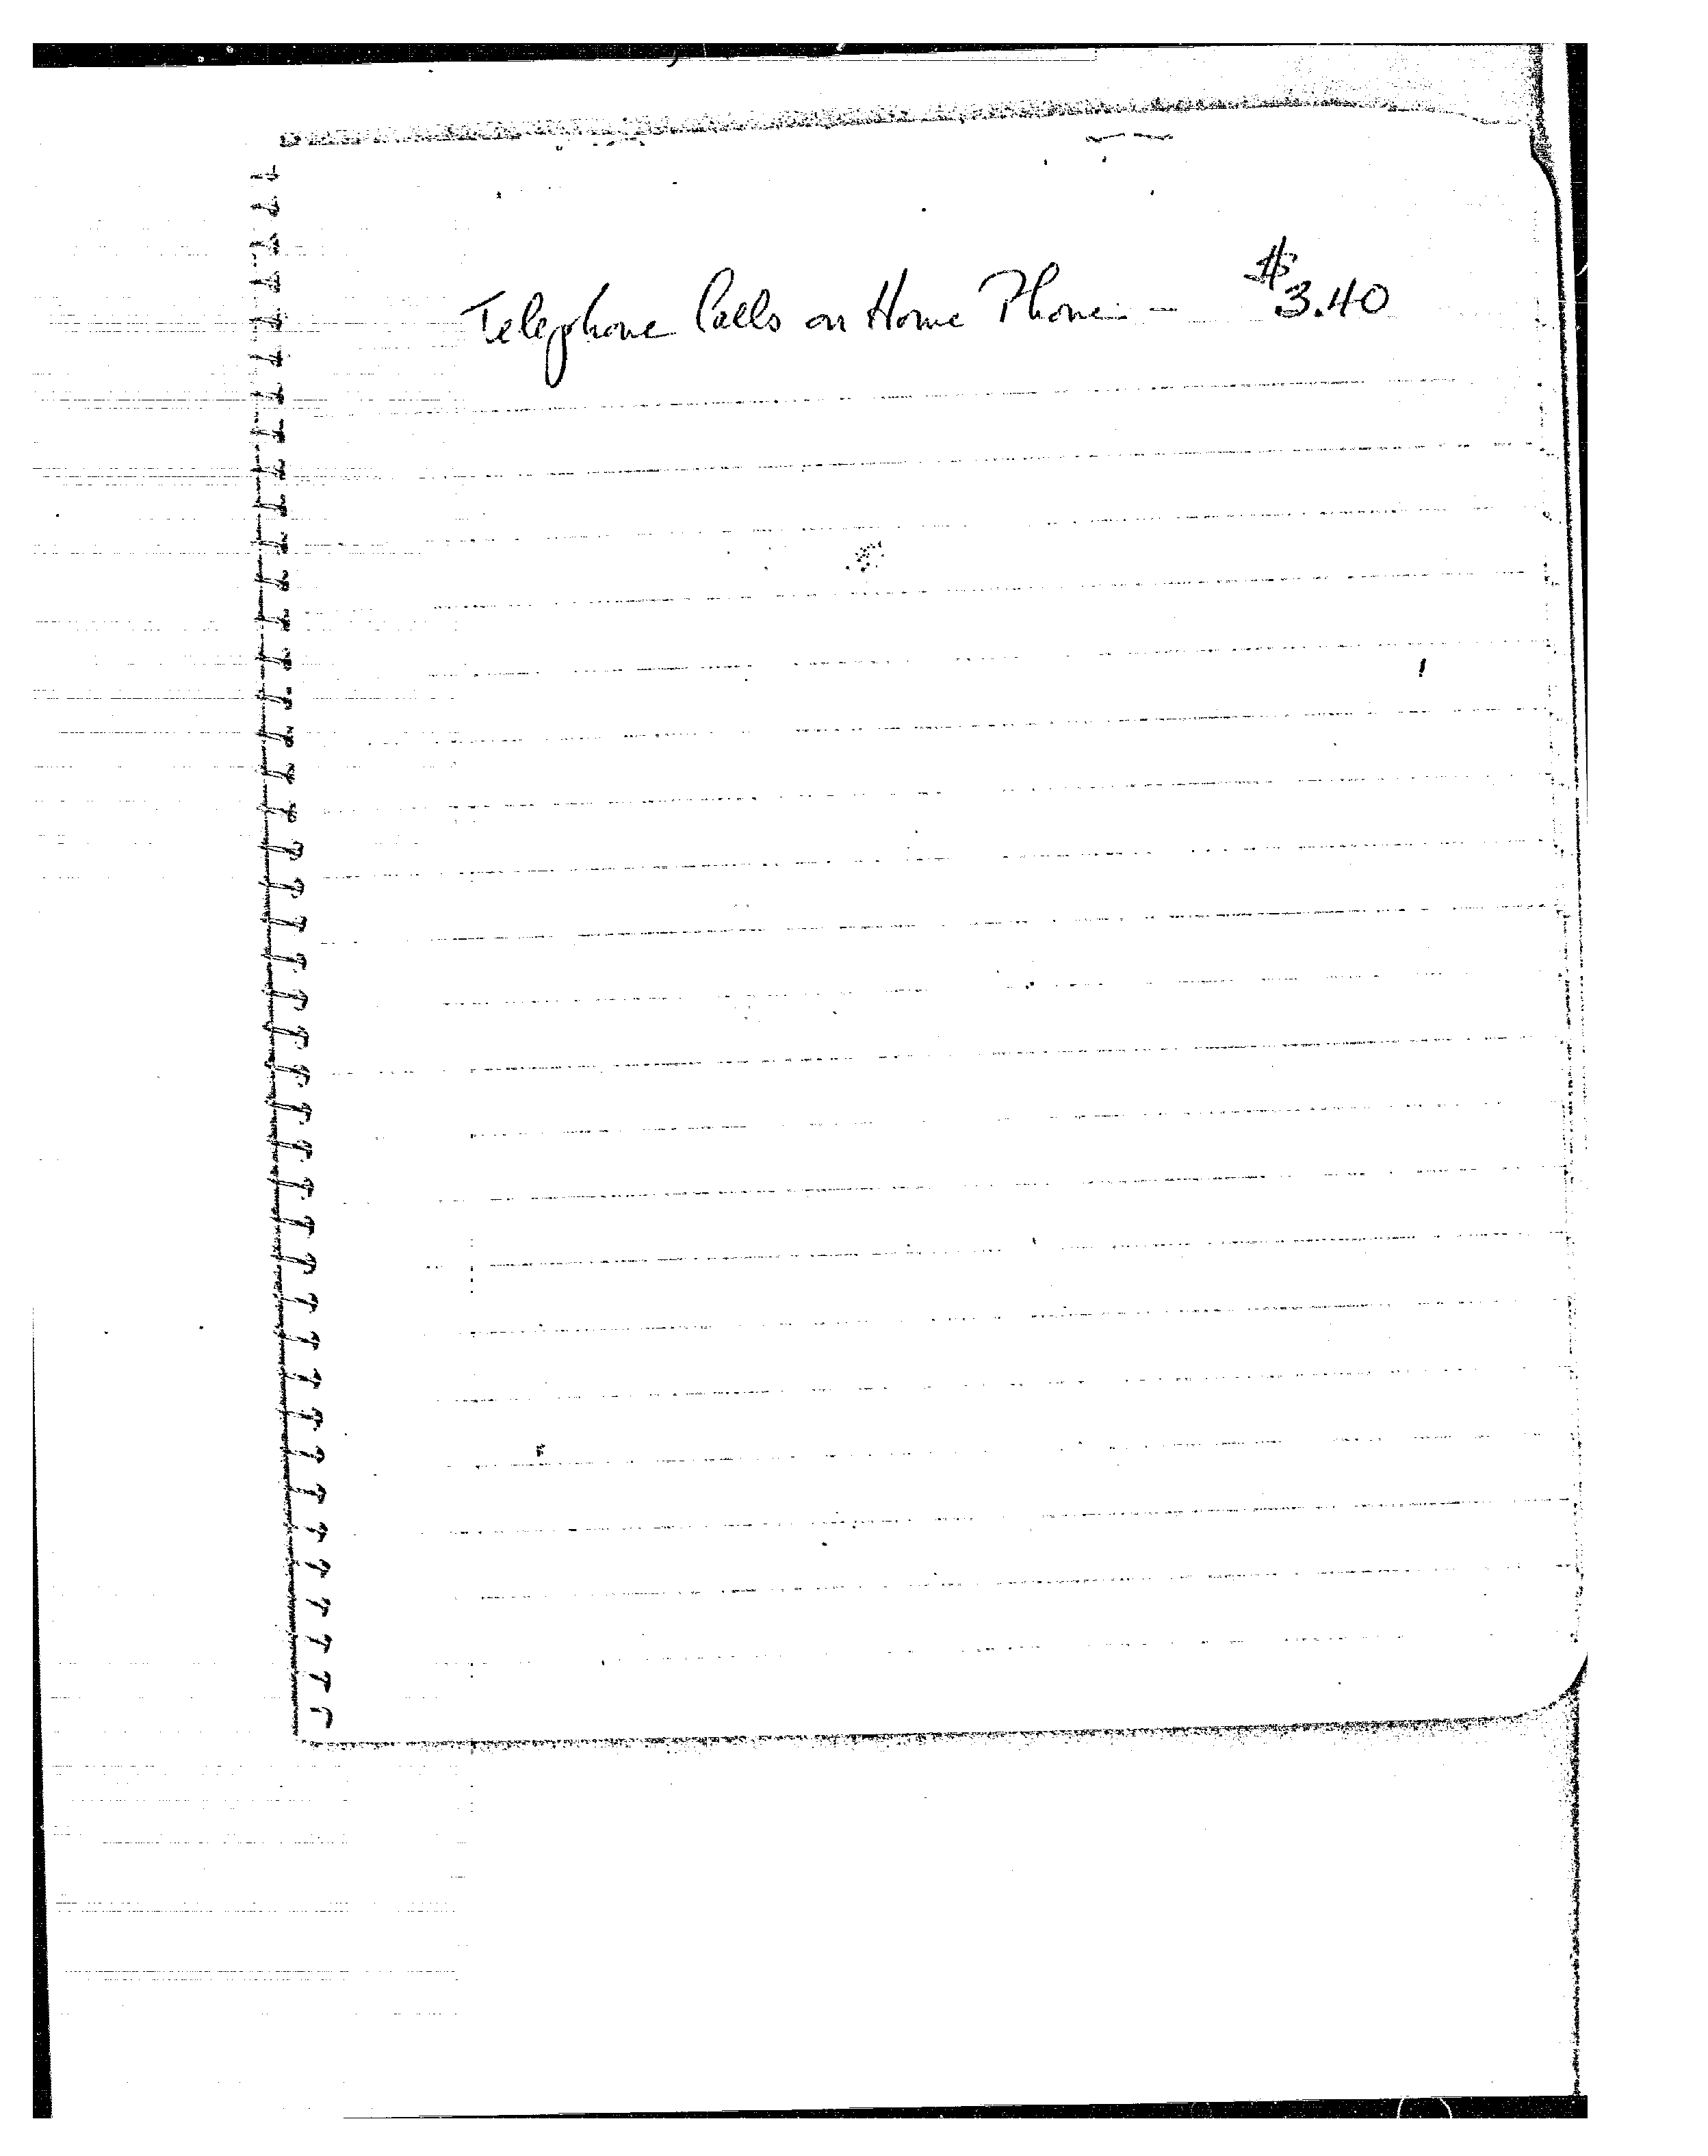 Telephone Calls on Home Phone - $3.40